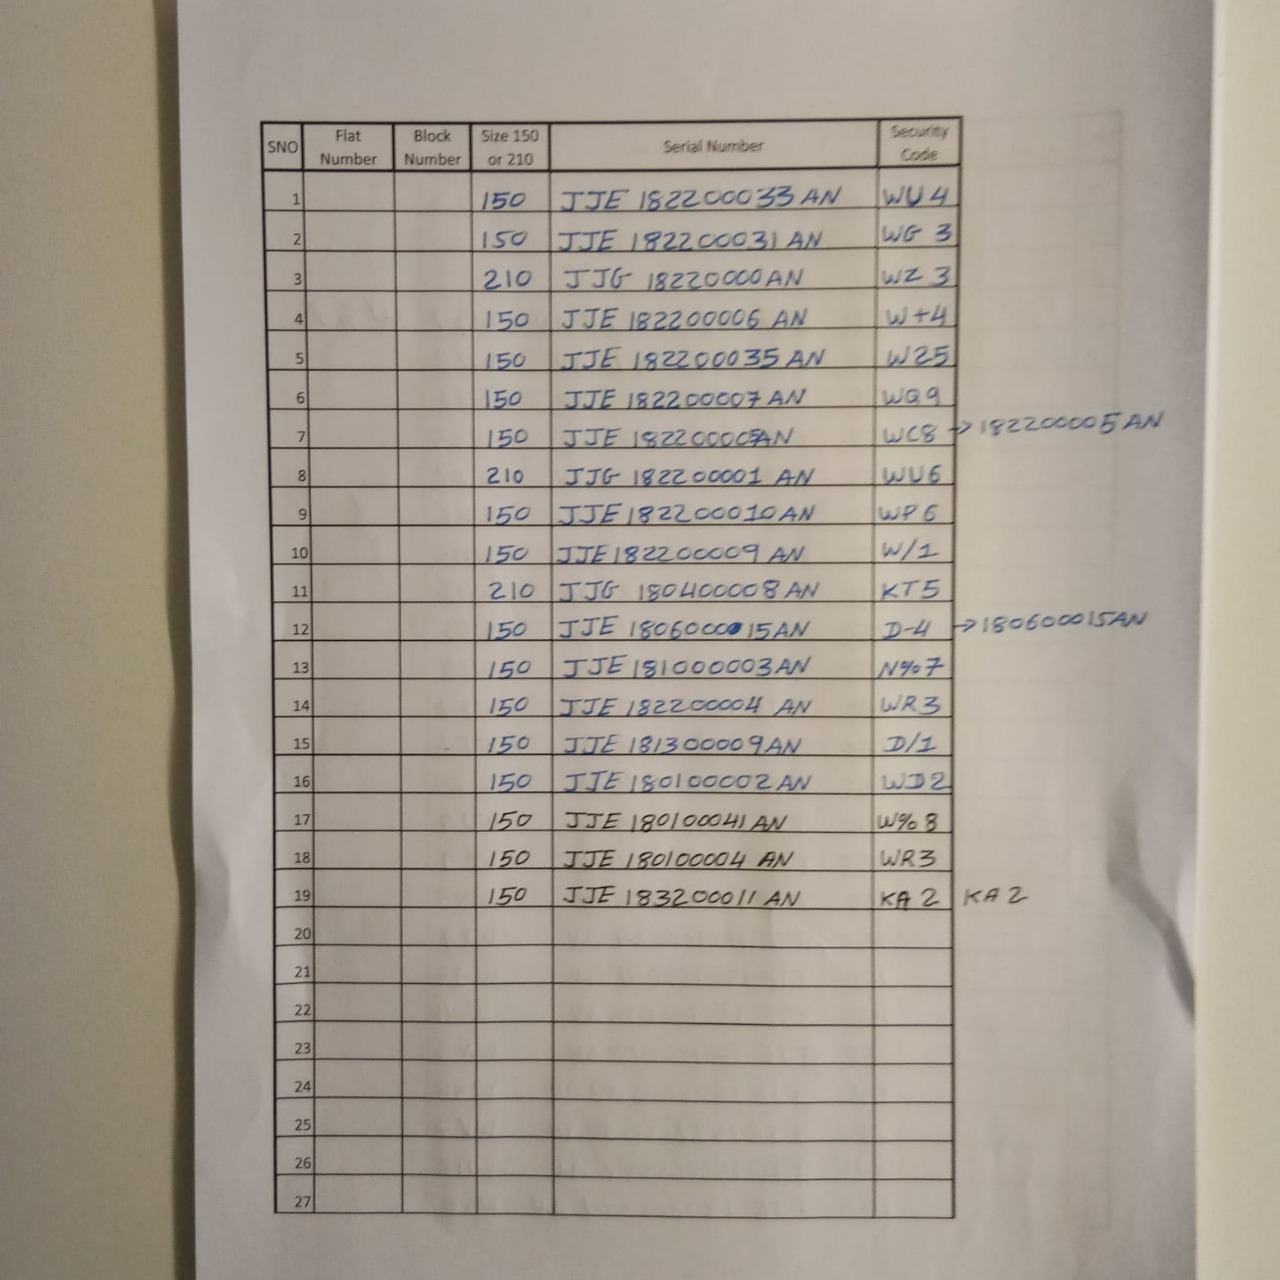 SNO Flat Number Block Number Size 150 or 210 Serial Number Security Code
1 150 JJE 182200033 AN WU4
2 150 JJE 182200031 AN WG 3
3 210 JJG 18220000 AN WZ 3
4 150 JJE 182200006 AN W+4
5 150 JJE 182200035 AN W25
6 150 JJE 182200007 AN WQ9
7 150 JJE 182200005AN WC8 → 182200005AN
8 210 JJG 182200001 AN WU6
9 150 JJE 182200010AN WP6
10 150 JJE 182200009 AN W/1
11 210 JJG 180400008 AN KT5
12 150 JJE 18060000 15AN D-4 → 180600015AN
13 150 JJE 181000003AN N%7
14 150 JJE 182200004 AN WR3
15 150 JJE 181300009AN D/1
16 150 JJE 180100002 AN WD2
17 150 JJE 180100041 AN W%8
18 150 JJE 180100004 AN WR3
19 150 JJE 183200011 AN KA 2 KA 2
20
21
22
23
24
25
26
27